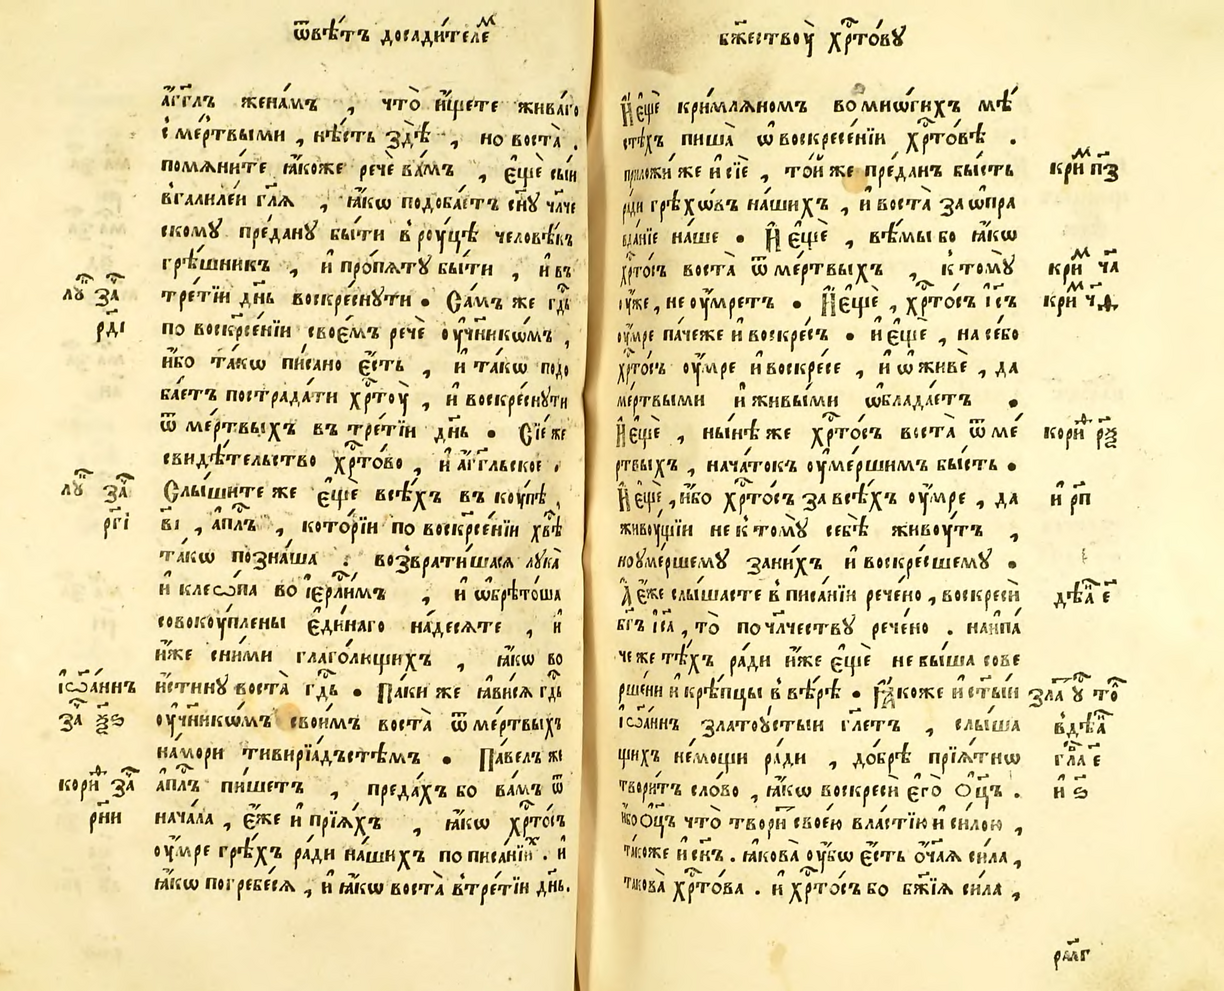 ѿвѣ́тъ досади́телеⷨ
а҆́гг҃лъ жена́мъ , что̀ и҆́щете жива́го
с̾ ме́ртвыми , нѣ́сть здѣ̀ , но воста̀ .
помѧни́те ꙗ҆́коже речѐ ва́мъ , є҆щѐ сы́и
в̾галиле́и гл҃ѧ , ꙗ҆́кѡ подоба́етъ сн҃ꙋ чл҃че
скомꙋ пре́данꙋ бы́ти в̾ рꙋцѣ̀ человѣ́къ
грѣ́шникъ , и҆ про́пѧтꙋ бы́ти , и҆ въ
лꙋⷦ҇ заⷱ҇ тре́тїи дн҃ь воскре́снꙋти . Са́мъ же гд҇ь
рд҃і по воскр҃се́нїи своє́мъ речѐ оу҆ч҃нкѡ́мъ ,
и҆́бо та́кѡ пи́сано є҆́сть , и҆ та́кѡ подо
ба́етъ пострада́ти хр҇тоу̀ , и҆ воскре́снꙋти
ѿ ме́ртвыхъ въ тре́тїи дн҃ь . Сїе́ же
свидѣ́тельство хр҇то́во , и҆ а҆́гг҃льское .
лꙋⷦ҇ заⷱ҇ Слы́шите же є҆щѐ всѣ́хъ въ кꙋ́пѣ ,
рг҃і в҃і , а҆пл҇ъ , кото́рїи по воскр҃се́нїи хв҃ѣ
та́кѡ позна́ша : возврати́шасѧ лꙋка̀
и҆ клео́па во і҆ерл҇и́мъ , и҆ ѡ҆брѣто́ша
совокꙋ́плены є҆ди́наго на́десѧте , и҆
и҆́же сни́ми глаго́лющихъ , ꙗ҆́кѡ во
і҆ѡа́ннъ и҆́стинꙋ воста̀ гд҇ь . Па́ки же ꙗ҆ви́сѧ гд҇ь
заⷱ҇ ѯ҃ѕ оу҆ч҃нкѡ́мъ свои́мъ воста̀ ѿ ме́ртвыхъ
на́мори тивирїа́дъстѣмъ . Па́велъ же
кориⷴ҇ заⷱ҇ а҆пл҇ъ пи́шетъ , преда́хъ бо ва́мъ ѿ
рн҃и нача́ла , є҆́же и҆ прїѧ́хъ , ꙗ҆́кѡ хр҇то́съ
оу҆́мре грѣ̂хъ ра́ди на́шихъ по писа́нїиⷯ . и҆
ꙗ҆́кѡ погребе́сѧ , и҆ ꙗ҆́кѡ воста̀ в̾тре́тїи дн҃ь .
бж҃ествоу̀ хр҇то́вꙋ
И҆ є҆щѐ кри́млѧномъ во мно́гихъ мѣ́
стѣхъ пиша̀ ѡ҆ воскресе́нїи хр҇то́вѣ .
приложи́ же и҆ сїѐ , то́и же пре́данъ бы́сть криⷨ п҃з
ра́ди грѣхѡ́въ на́шихъ , и҆ воста̀ за ѡ҆пра
вда́нїе на́ше . И҆ є҆щѐ , вѣ́мы бо ꙗ҆́кѡ
хр҇то́съ воста̀ ѿ ме́ртвыхъ , к̾ томꙋ̀ криⷨ ч҃а
оу҆жѐ , не оу҆́мретъ . И҆ є҆щѐ , хр҇то́съ і҆с҃ъ криⷨ
оу҆́мре па́че же и҆ воскре́съ . и҆ є҆щѐ , на се́бо
хр҇то́съ оу҆́мре и҆ воскре́се , и҆ ѡ҆живѐ , да
ме́ртвыми и҆ живы́ми ѡ҆блада́етъ .
И҆ є҆щѐ , ны́нѣ же хр҇то́съ воста̀ ѿ ме́ кориⷴ҇ рѯ҃
ртвыхъ , нача́токъ оу҆ме́ршимъ бы́сть .
И҆ є҆щѐ , и҆́бо хр҇то́съ за всѣ́хъ оу҆́мре , да и҆ рп҃
живꙋ́щїи не к̾ томꙋ̀ себѣ̀ живꙋ́тъ ,
но оу҆ме́ршемꙋ за ни́хъ и҆ воскре́сшемꙋ .
А҆ є҆́же слы́шасте в̾ писа́нїи рече́но , воскресѝ дѣⷽ҇а є҃
бг҃ъ і҆с҃а , то̀ по чл҃честву рече́но . наипа
че же тѣ́хъ ра́ди и҆́же є҆щѐ не бы́ша сове
рше́ни и҆ крѣ́пцы в̾ вѣ́рѣ . Ꙗ҆́коже и҆ ст҃ы́и злаⷮ ᲂу҆ тоⷧ҇
і҆ѡа́ннъ златоꙋ́стыи гл҃етъ , слы́ша в̾дѣⷽ҇а
щихъ не́мощи ра́ди , до́брѣ прїѧ́тнѡ глⷡ҇а є҃
твори́тъ сло́во , ꙗ҆́кѡ воскресѝ є҆го̀ Ѻ҆ц҃ъ . и҆ ѕ҃
и҆́бо Ѻ҆ц҃ъ что̀ твори́ свое́ю вла́стїю и҆ си́лою ,
та́коже и҆ сн҃ъ . ꙗ҆кова̀ оу҆́бѡ є҆́сть ѻ҆́ч҃аѧ си́ла ,
такова̀ хр҇то́ва . и҆ хр҇то́съ бо бж҃їѧ си́ла ,